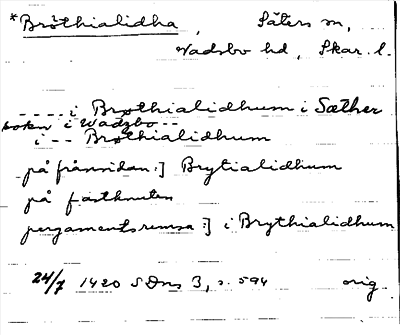 *Brøthialidha, Säters sn,
Wadsbo hd, Skar. l.
- - - - i Brøthialidhum i Sæther
sokn i Wadzbo - -
i - - Brøthialidhum
på frånsidan:] Brytialidhum
på fastknuten
pergamentsremsa:] i Brythialidhum
24/7 1420 SDns 3, s. 594 orig.